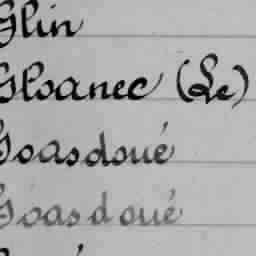 Glin
Gloanec (Le)
Goasdoué
Goasdoué